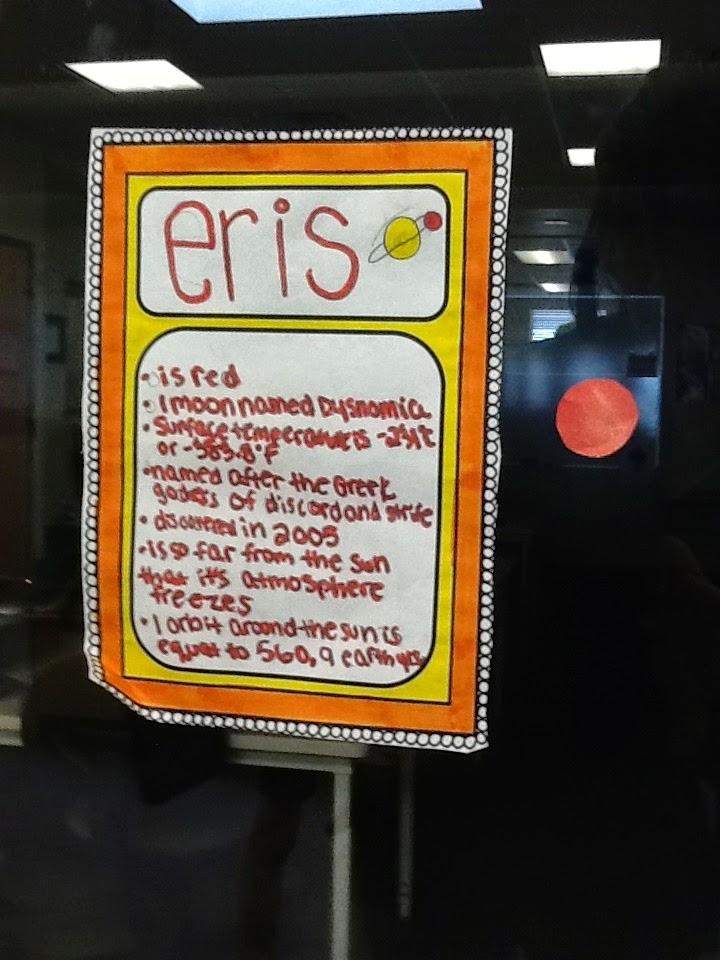 eris
• is red
• 1 moon named Dysnomia
• Surface temperature is -231°C
or -383.8°F
• named after the Greek
godess of discord and strife
• discovered in 2005
• is so far from the sun
that it's atmosphere
freezes
• 1 orbit around the sun is
equal to 560,9 earth yrs